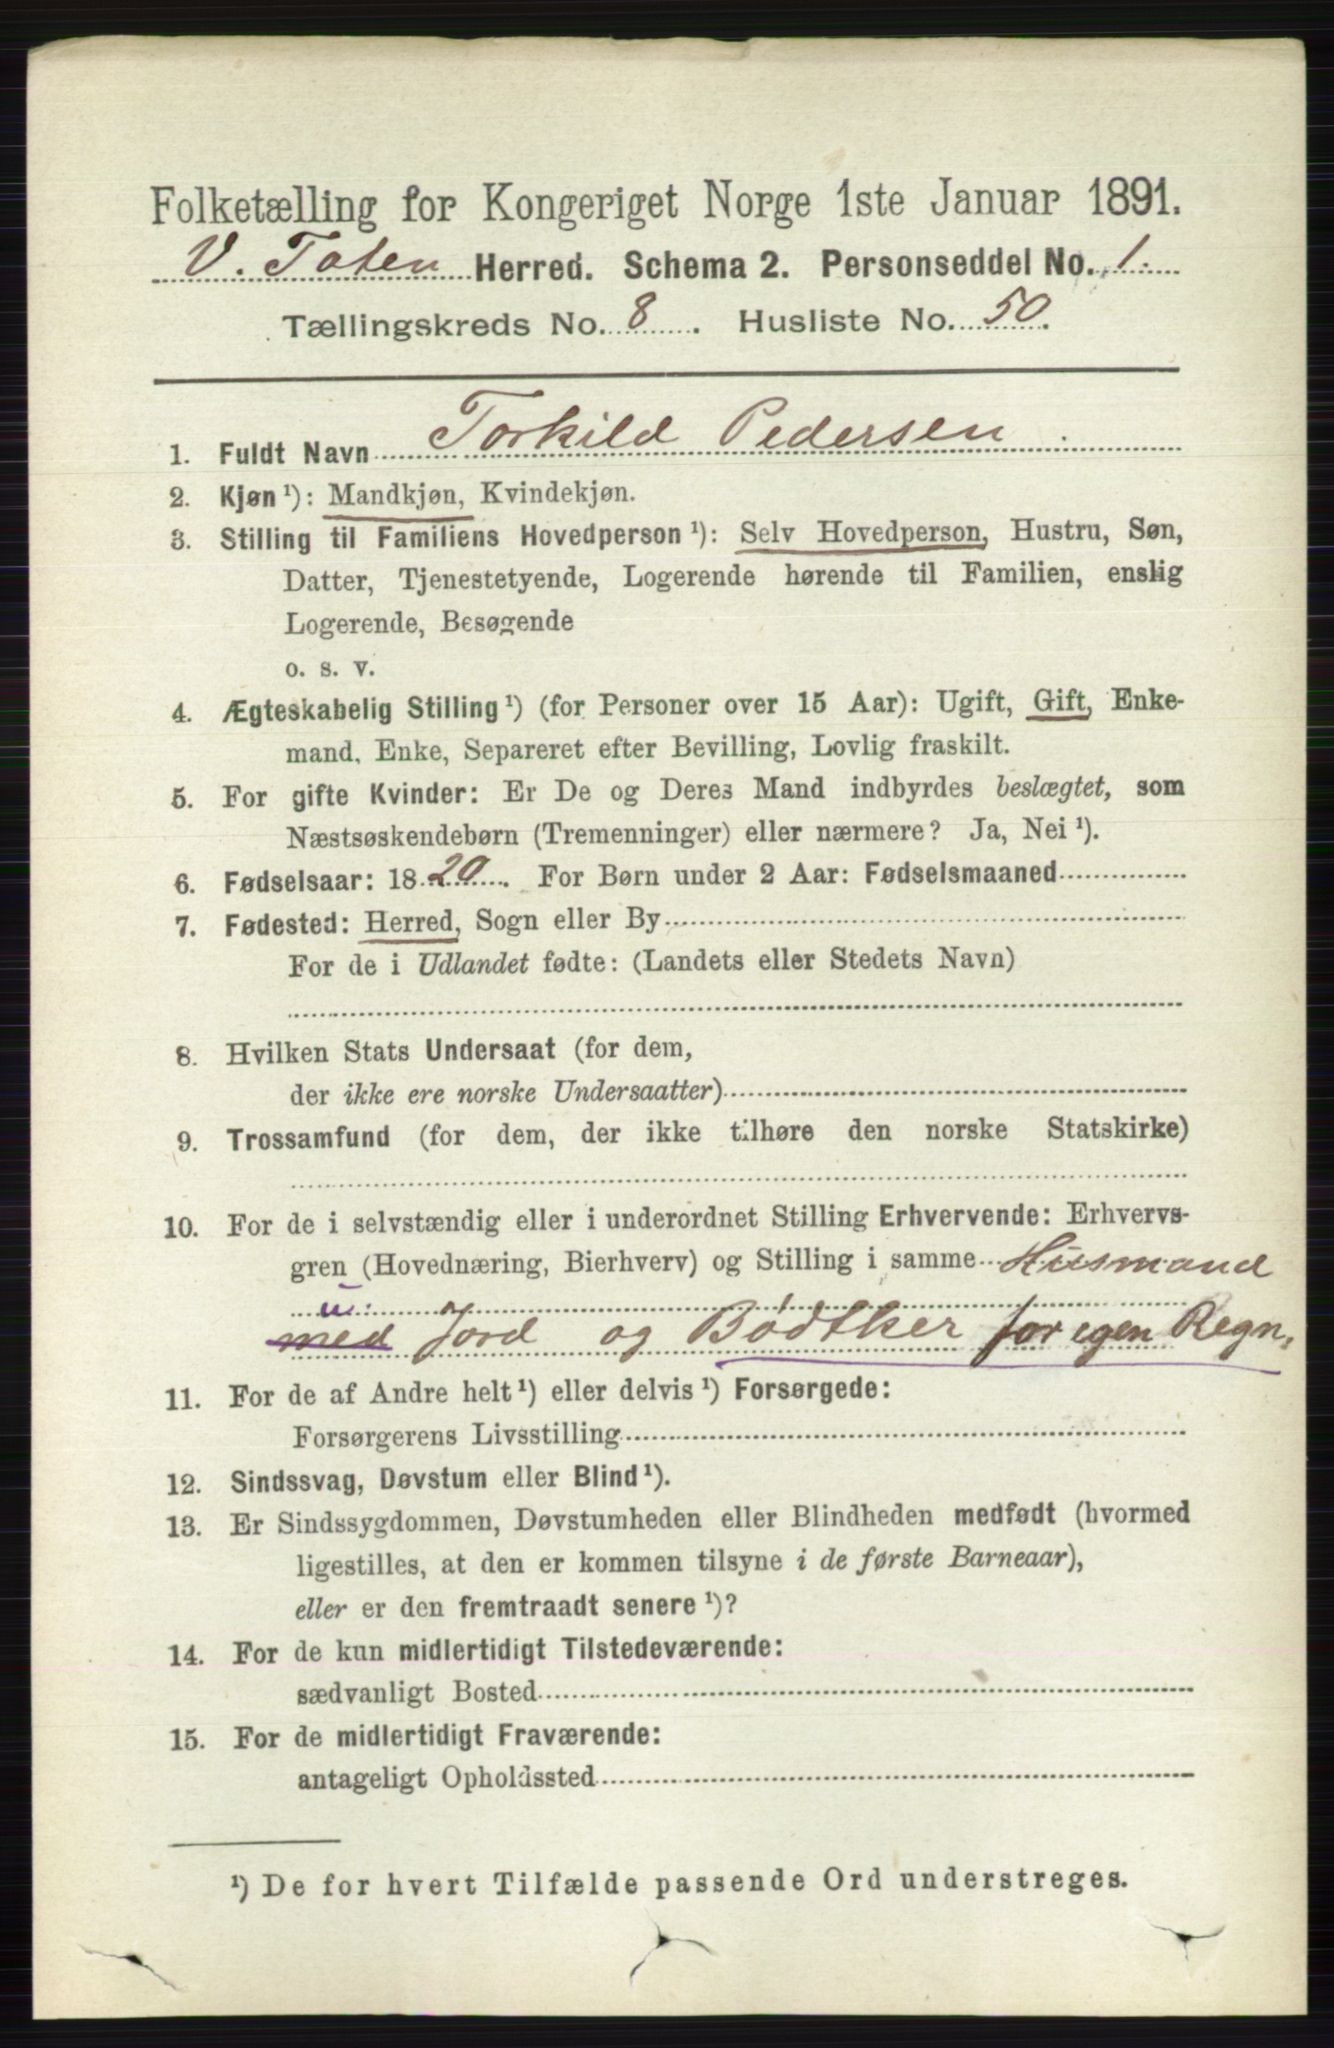 Folketælling for Kongeriget Norge 1ste Januar 1891.
V. Toten Herred. Schema 2. Personseddel No. 1.
Tællingskreds No. 8. Husliste No. 50.
1. Fuldt Navn Torkild Pedersen
2. Kjøn ¹): Mandkjøn, Kvindekjøn.
3. Stilling til Familiens Hovedperson ¹): Selv Hovedperson, Hustru, Søn,
Datter, Tjenestetyende, Logerende hørende til Familien, enslig
Logerende, Besøgende
o. s. v.
4. Ægteskabelig Stilling ¹) (for Personer over 15 Aar): Ugift, Gift, Enke-
mand, Enke, Separeret efter Bevilling, Lovlig fraskilt.
5. For gifte Kvinder: Er De og Deres Mand indbyrdes beslægtet, som
Næstsøskendebørn (Tremenninger) eller nærmere? Ja, Nei ¹).
6. Fødselsaar: 1820. For Børn under 2 Aar: Fødselsmaaned
7. Fødested: Herred, Sogn eller By
For de i Udlandet fødte: (Landets eller Stedets Navn)
8. Hvilken Stats Undersaat (for dem,
der ikke ere norske Undersaatter)
9. Trossamfund (for dem, der ikke tilhøre den norske Statskirke)
10. For de i selvstændig eller i underordnet Stilling Erhvervende: Erhvervs-
gren (Hovednæring, Bierhverv) og Stilling i samme Husmand
u:
med Jord og Bødtker for egen Regn.
11. For de af Andre helt ¹) eller delvis ¹) Forsørgede:
Forsørgerens Livsstilling
12. Sindssvag, Døvstum eller Blind ¹).
13. Er Sindssygdommen, Døvstumheden eller Blindheden medfødt (hvormed
ligestilles, at den er kommen tilsyne i de første Barneaar),
eller er den fremtraadt senere ¹)?
14. For de kun midlertidigt Tilstedeværende:
sædvanligt Bosted
15. For de midlertidigt Fraværende:
antageligt Opholdssted
¹) De for hvert Tilfælde passende Ord understreges.